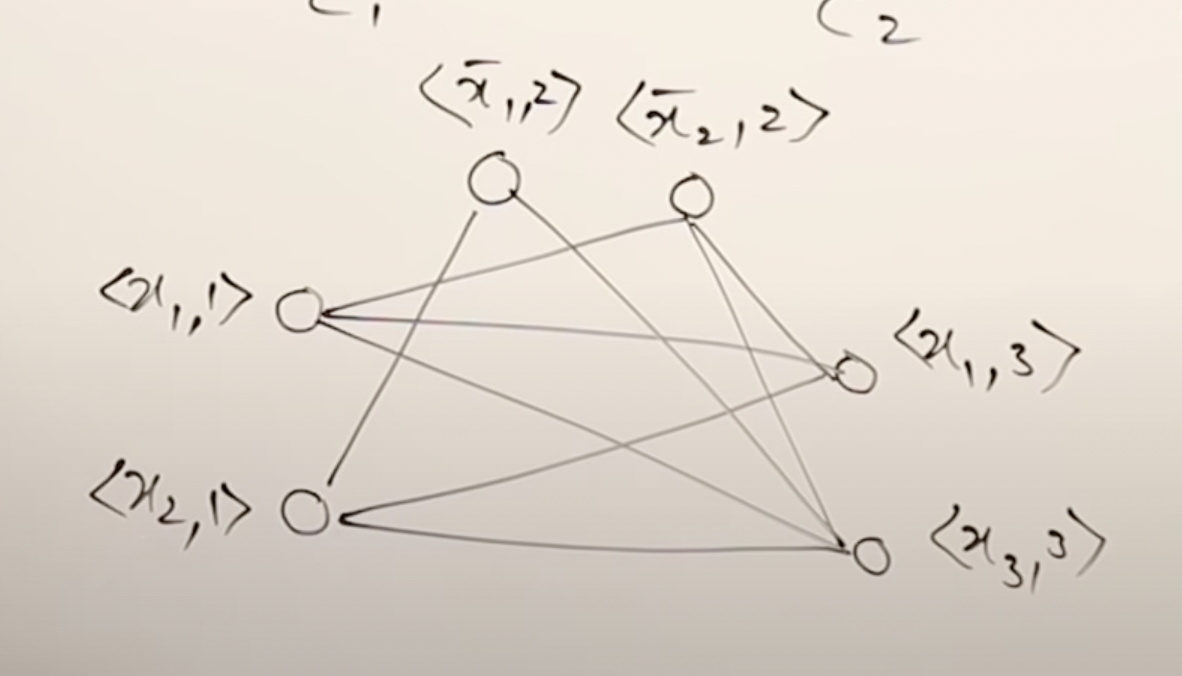 C₁ C₂
⟨x̄₁,2⟩ ⟨x̄₂,2⟩
⟨x₁,1⟩
⟨x₁,3⟩
⟨x₂,1⟩
⟨x₃,3⟩